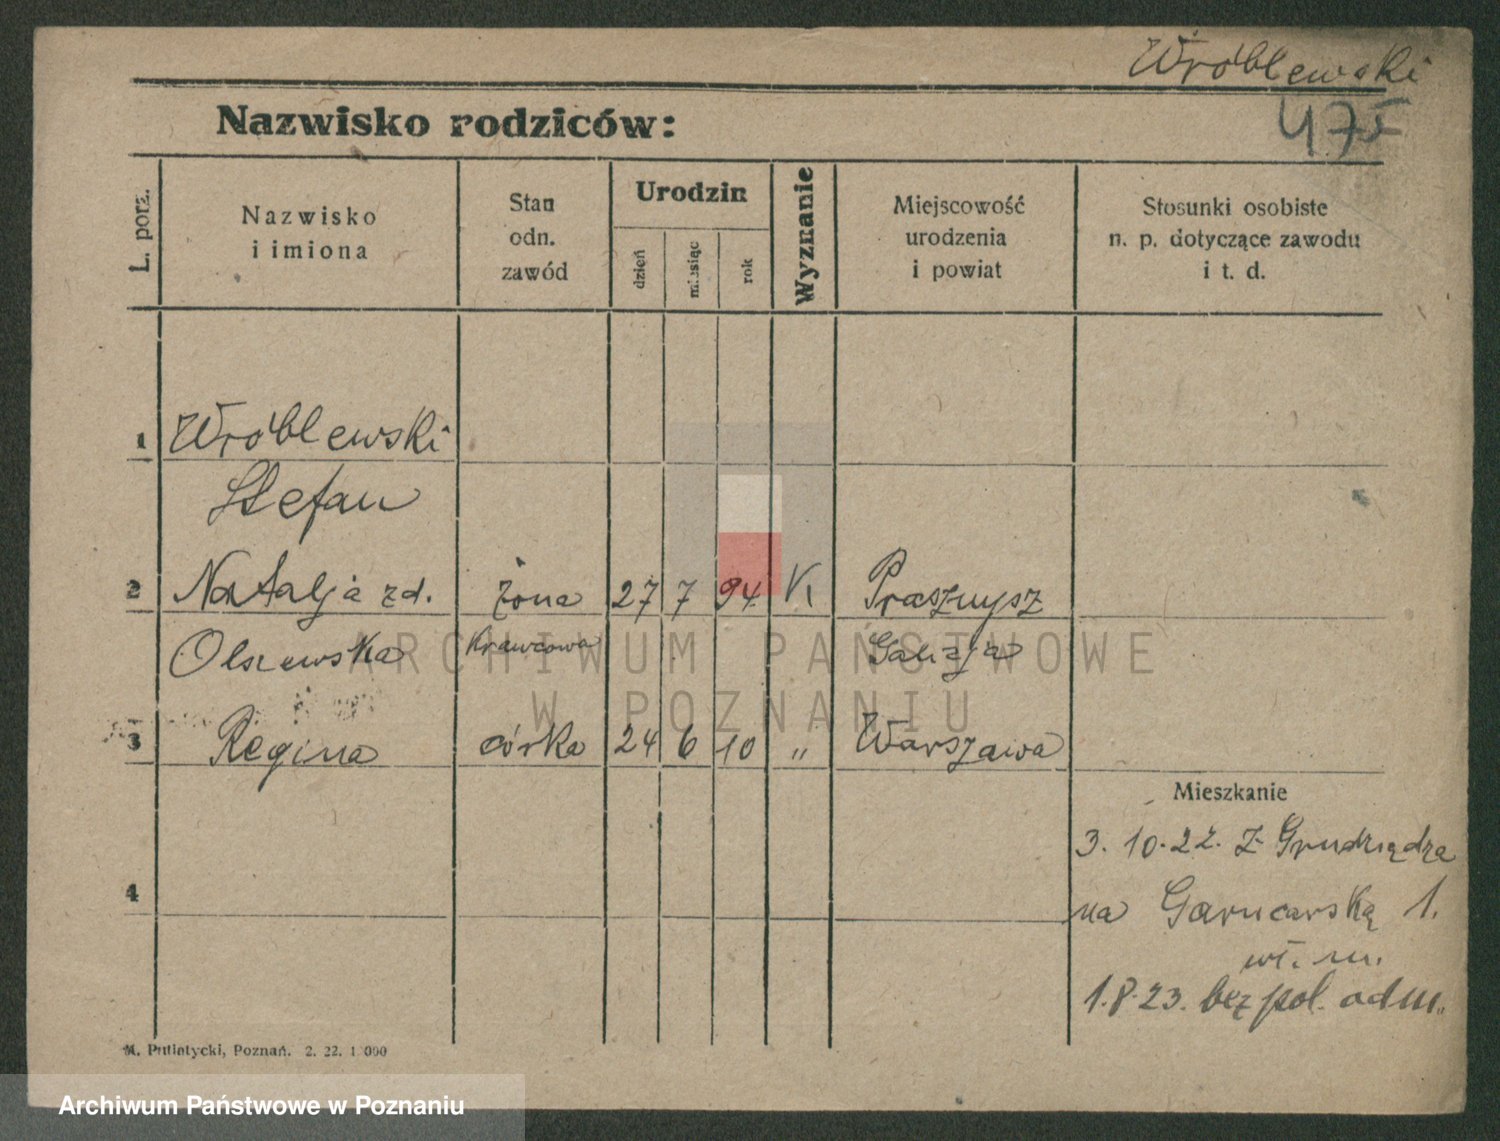 Wróblewski
Nazwisko rodziców:
47I
L. porz.
Nazwisko
i imiona
Stan
odn.
zawód
Urodzin
dzień
miesiąc
rok
Wyznanie
Miejscowość
urodzenia
i powiat
Stosunki osobiste
n. p. dotyczące zawodu
i t. d.
1 Wróblewski
Stefan
2 Natalja zd. żona 27 7 94 Prasznysz
Olszewska Krawcowa Galicja
3 Regina córka 24 6 10 „ Warszawa
Mieszkanie
3. 10. 22. Z Grudziądza
4
na Garncarską 1.
wł. m.
1. 8. 23. bez pol. odm.
M. Putiatycki, Poznań. 2. 22. 1 000
ARCHIWUM PAŃSTWOWE
W POZNANIU
Archiwum Państwowe w Poznaniu